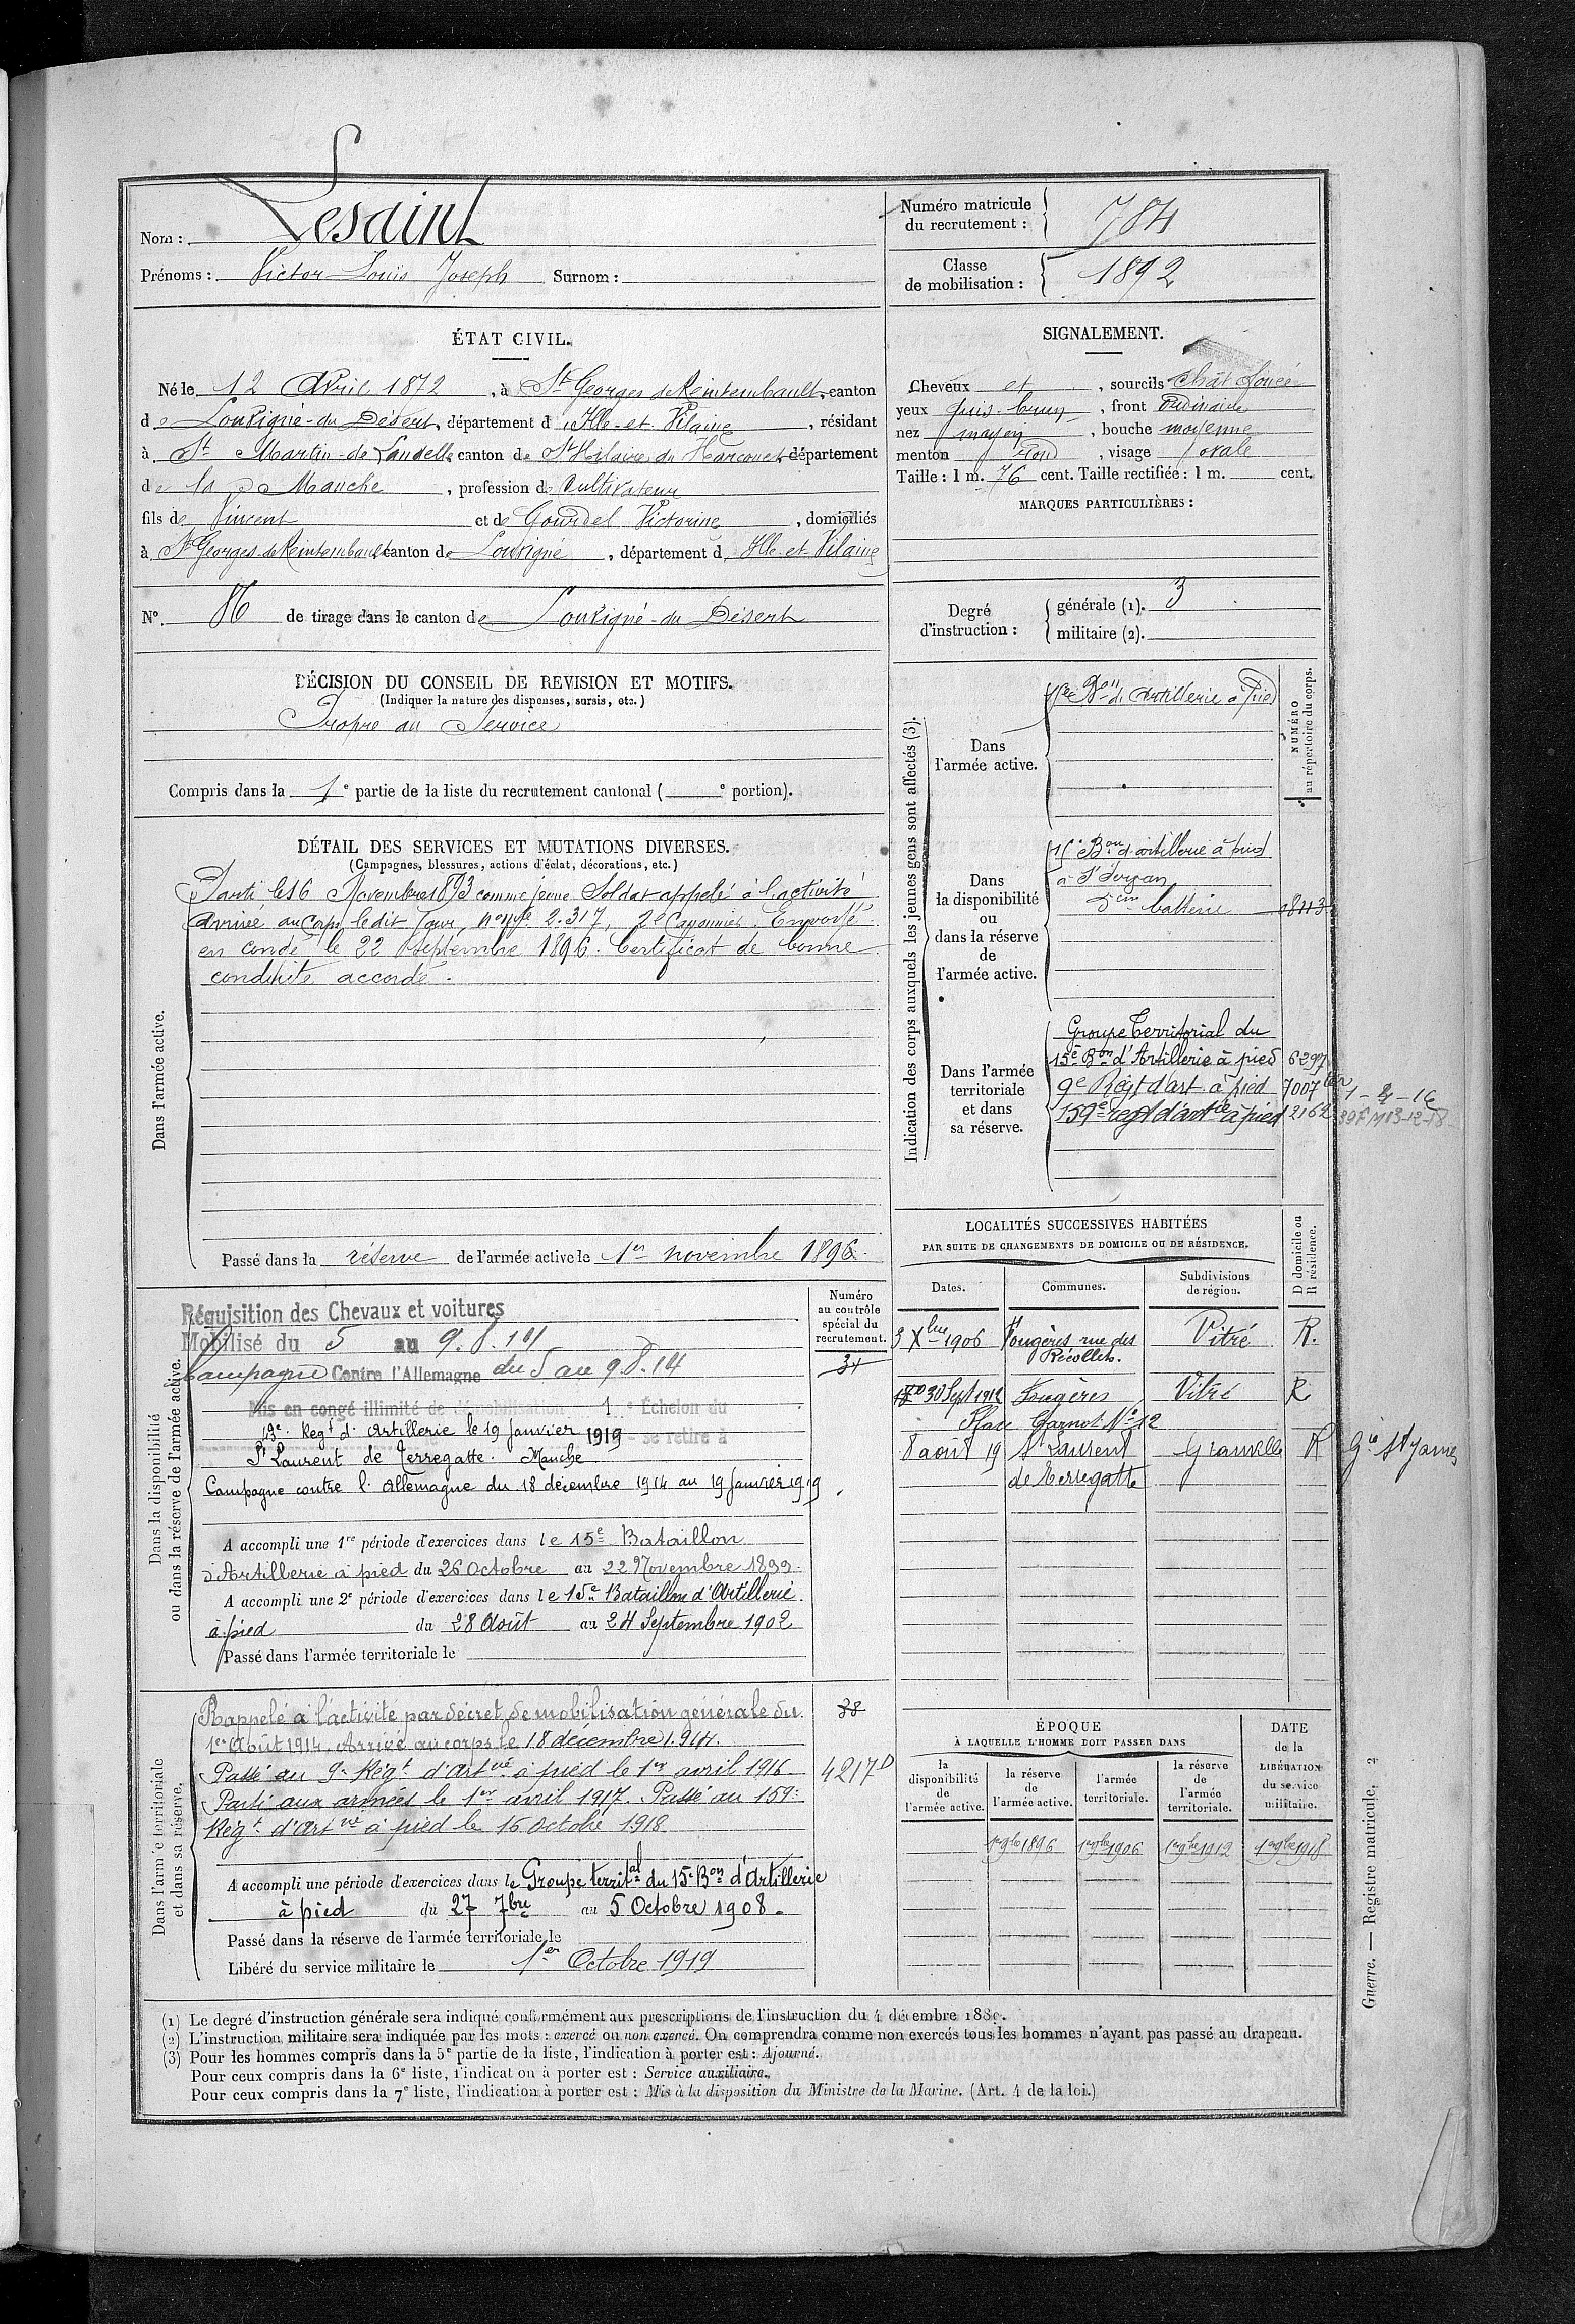 Nom : Lesaint
Prénoms : Victor Louis Joseph Surnom :
Numéro matricule du recrutement : 784
Classe de mobilisation : 1892
ÉTAT CIVIL.
Né le 12 Avril 1872, à St Georges de Reintembault, canton
de Louvigné-du-Désert, département d'Ille-et-Vilaine, résidant
à St Martin-de Landelle canton de St Hilaire du Harcouet, département
de la Manche, profession de Cultivateur
fils de Vincent et de Gourdel Victorine, domiciliés
à St Georges-de Reintembault, canton de Louvigné, département d Ille-et-Vilaine
SIGNALEMENT.
Cheveux et, sourcils Chât foncé
yeux gris-brun, front Ordinaire
nez moyen, bouche moyenne
menton rond, visage ovale
Taille : 1 m. 76 cent. Taille rectifiée : 1 m. cent.
MARQUES PARTICULIÈRES :
N°. 86 de tirage dans le canton de Louvigné-du Désert
Degré d'instruction : générale (1). 3
militaire (2).
DÉCISION DU CONSEIL DE REVISION ET MOTIFS.
(Indiquer la nature des dispenses, sursis, etc.)
Propre au Service
Compris dans la 1e partie de la liste du recrutement cantonal ( e portion).
DÉTAIL DES SERVICES ET MUTATIONS DIVERSES.
(Campagnes, blessures, actions d'éclat, décorations, etc.)
Dans l'armée active.
Parti le 16 Novembre 1893 comme jeune Soldat appelé à l'activité
arrivé au Corps le dit Jour, 2.317, 2e Canonnier. Envoyé
en congé le 22 Septembre 1896. Certificat de bonne
conduite accordé.
Passé dans la réserve de l'armée active le 1er novembre 1896.
Indication des corps auxquels les jeunes gens sont affectés (3).
NUMÉRO au répertoire du corps.
Dans l'armée active.
Bon d'Artillerie à Pied
Dans la disponibilité ou dans la réserve de l'armée active.
15e Bon d'artillerie à pied
à St Servan
5em batterie 1843
Dans l'armée territoriale et dans sa réserve.
Groupe Territorial du
15e Bon d'Artillerie à pied 6297
9e Régt d'art. à pied 7007 ter 1-4-16
159e regt d'artie à pied 2162
LOCALITÉS SUCCESSIVES HABITÉES
PAR SUITE DE CHANGEMENTS DE DOMICILE OU DE RÉSIDENCE.
Dates. Communes. Subdivisions de région. D domicile ou R résidence.
3 Xbre 1906 Fougères rue des Récollets. Vitré R.
30 Sept 1912 Fougères Vitré R
Place Carnot No 12
8 août 19 St Laurent de Terregatte Granville R Gie St James
Dans la disponibilité ou dans la réserve de l'armée active.
Numéro au contrôle spécial du recrutement.
31
Réquisition des Chevaux et voitures
Mobilisé du 5 au 9.8.14
Campagne Contre l'Allemagne du 5 au 9.8.14
Mis en congé illimité de démobilisation 1e Échelon du
Regt d'Artillerie le 19 Janvier 1919 - se retire à
St Laurent de Terregatte. Manche
Campagne contre l'Allemagne du 18 décembre 1914 au 19 Janvier 1919
A accompli une 1re période d'exercices dans le 15e Bataillon
d'Artillerie à pied du 26 Octobre au 22 Novembre 1899.
A accompli une 2e période d'exercices dans le 15e Bataillon d'Artillerie
à pied du 28 Août au 24 Septembre 1902
Passé dans l'armée territoriale le
Dans l'armée territoriale et dans sa réserve.
Rappelé à l'activité par décret de mobilisation générale du
1er Août 1914. Arrivé au corps le 18 décembre 1914.
Passé au 9e Régt d'Artie à pied le 1er avril 1916
Parti aux armées le 1er avril 1917. Passé au 159e
Régt d'Artie à pied le 16 octobre 1918
38
4217 D
A accompli une période d'exercices dans le Groupe territal du 15e Bon d'Artillerie
à pied du 27 7bre au 5 Octobre 1908.
Passé dans la réserve de l'armée territoriale le
Libéré du service militaire le 1er Octobre 1919
ÉPOQUE
À LAQUELLE L'HOMME DOIT PASSER DANS
DATE de la LIBÉRATION du service militaire.
la disponibilité de l'armée active. la réserve de l'armée active. l'armée territoriale. la réserve de l'armée territoriale.
1er 9bre 1896 1er 9bre 1906 1er 9bre 1912 1er 9bre 1918
Guerre. — Registre matricule. 2
(1) Le degré d'instruction générale sera indiqué conformément aux prescriptions de l'instruction du 4 décembre 1889.
(2) L'instruction militaire sera indiquée par les mots : exercé ou non exercé. On comprendra comme non exercés tous les hommes n'ayant pas passé au drapeau.
(3) Pour les hommes compris dans la 5e partie de la liste, l'indication à porter est : Ajourné.
Pour ceux compris dans la 6e liste, l'indication à porter est : Service auxiliaire.
Pour ceux compris dans la 7e liste, l'indication à porter est : Mis à la disposition du Ministre de la Marine. (Art. 4 de la loi.)